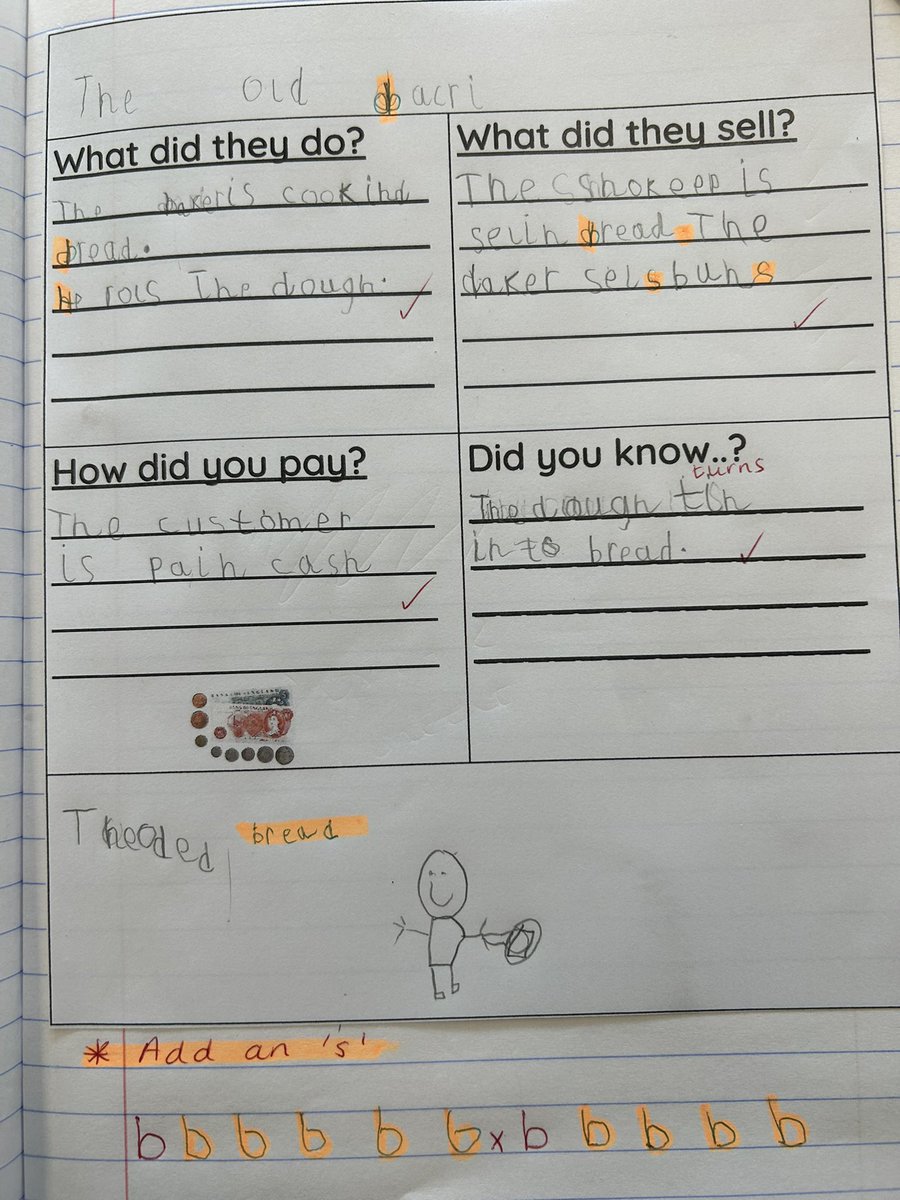 The old bacri
What did they do?
The bakeris cookind
bread.
He rols The dough.
What did they sell?
The Sshokeep is
selin bread. The
daker sels buns
How did you pay?
The customer
is pain cash
Did you know..?
turns
The dough
into bread.
BANK OF ENGLAND
bread
* Add an 's'
b b b b b b x b b b b b